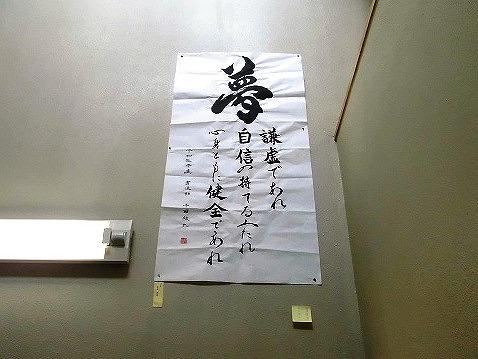 夢
謙虚であれ
自信の持てる人たれ
心身ともに健全であれ